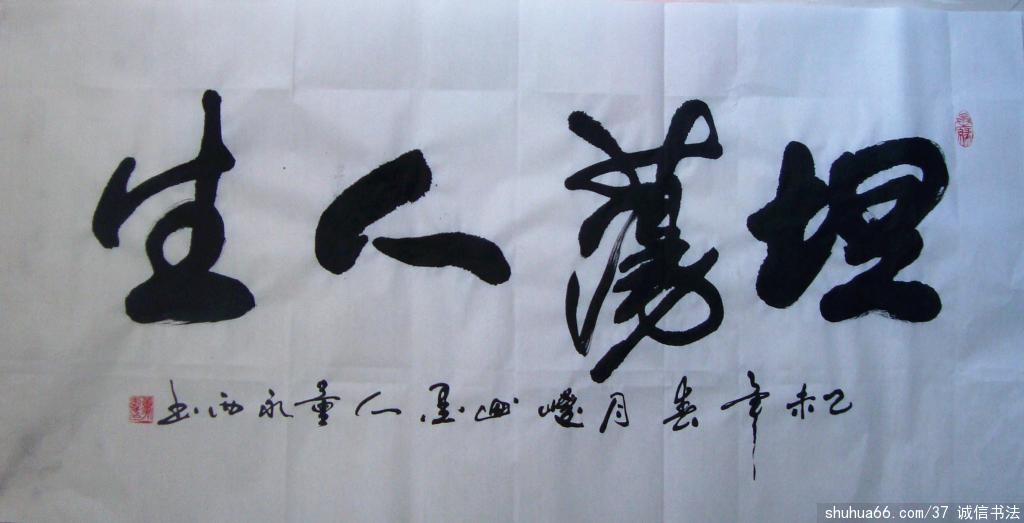 坦蕩人生
乙未年春月墨人永书
shuhua66.com/37 诚信书法